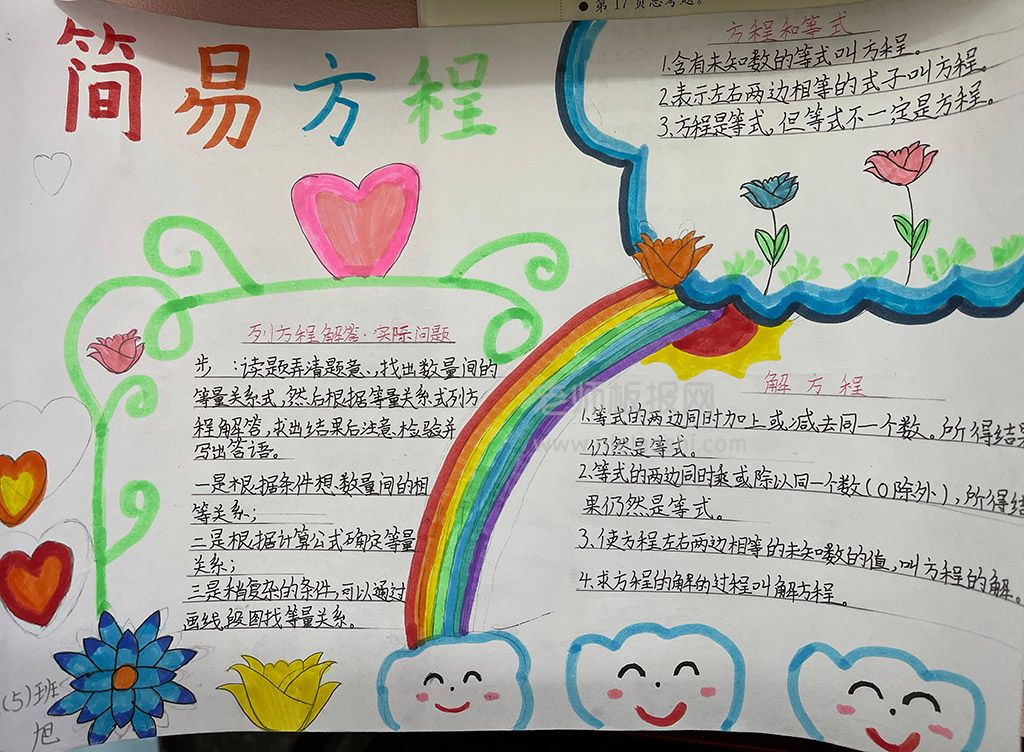 第17页思考题。
简易方程
方程和等式
1.含有未知数的等式叫方程。
2.表示左右两边相等的式子叫方程。
3.方程是等式,但等式不一定是方程。
列方程解答·实际问题
步 :读题弄清题意、,找出数量间的
等量关系式,然后根据等量关系式列方
程解答,求出结果后注意检验并
写出答语。
一是根据条件想数量间的相
等关系;
二是根据计算公式确定等量
关系;
三是稍复杂的条件,可以通过
画线段图找等量关系。
解方程
1.等式的两边同时加上或减去同一个数。所得结果
仍然是等式。
2.等式的两边同时乘或除以同一个数(0除外),所得结
果仍然是等式。
3.使方程左右两边相等的未知数的值,叫方程的解。
4.求方程的解的过程叫解方程。
老师板报网
(5)班
旭